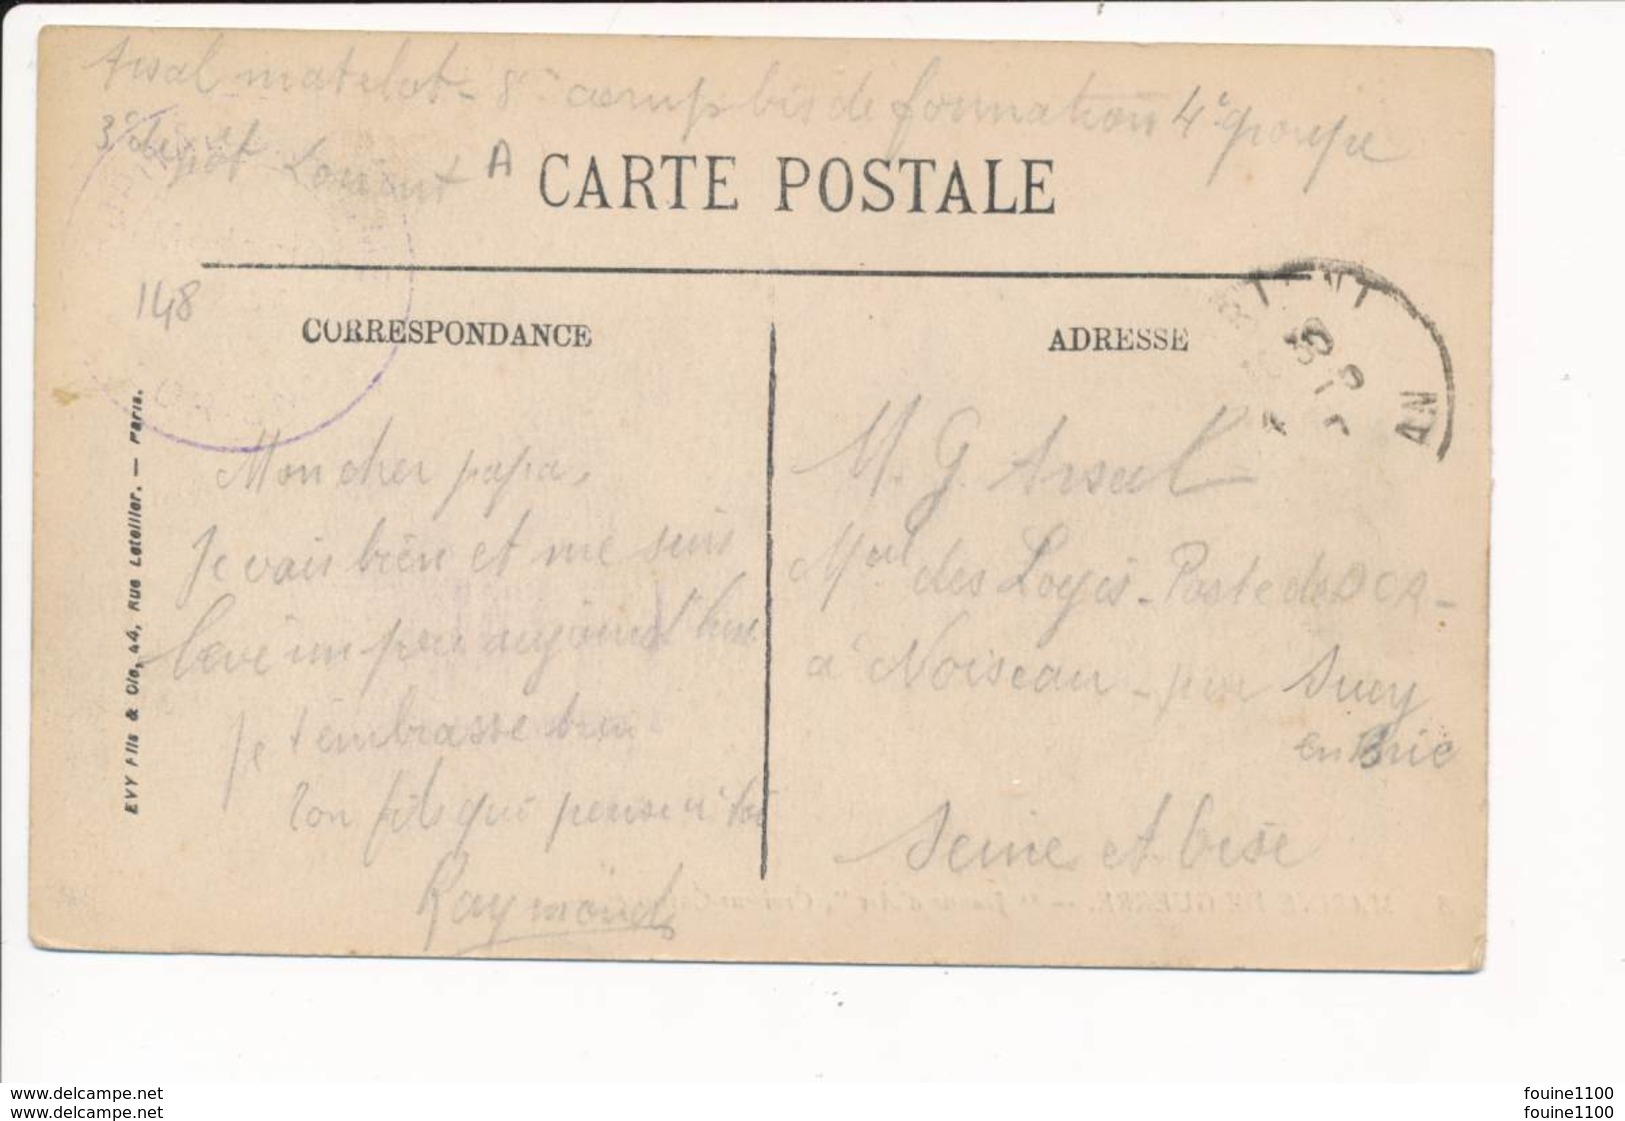 Arsal matelot - 8e comp bis de formation 4e groupe
3e dépôt Lorient A
CARTE POSTALE
148
CORRESPONDANCE
ADRESSE
AN
Mon cher papa,
Je vais bien et me suis
levé un peu aujourd'hui
Je t'embrasse bien
Ton fils qui pense à toi
Raymond
M. G. Arsal
Mal des Logis - Poste de DCA -
à Noiseau - par Sucy
en Brie
Seine et Oise
EVY Fils & Cie, 44, Rue Letellier. — Paris.
delcampe.net
delcampe.net
fouine1100
fouine1100